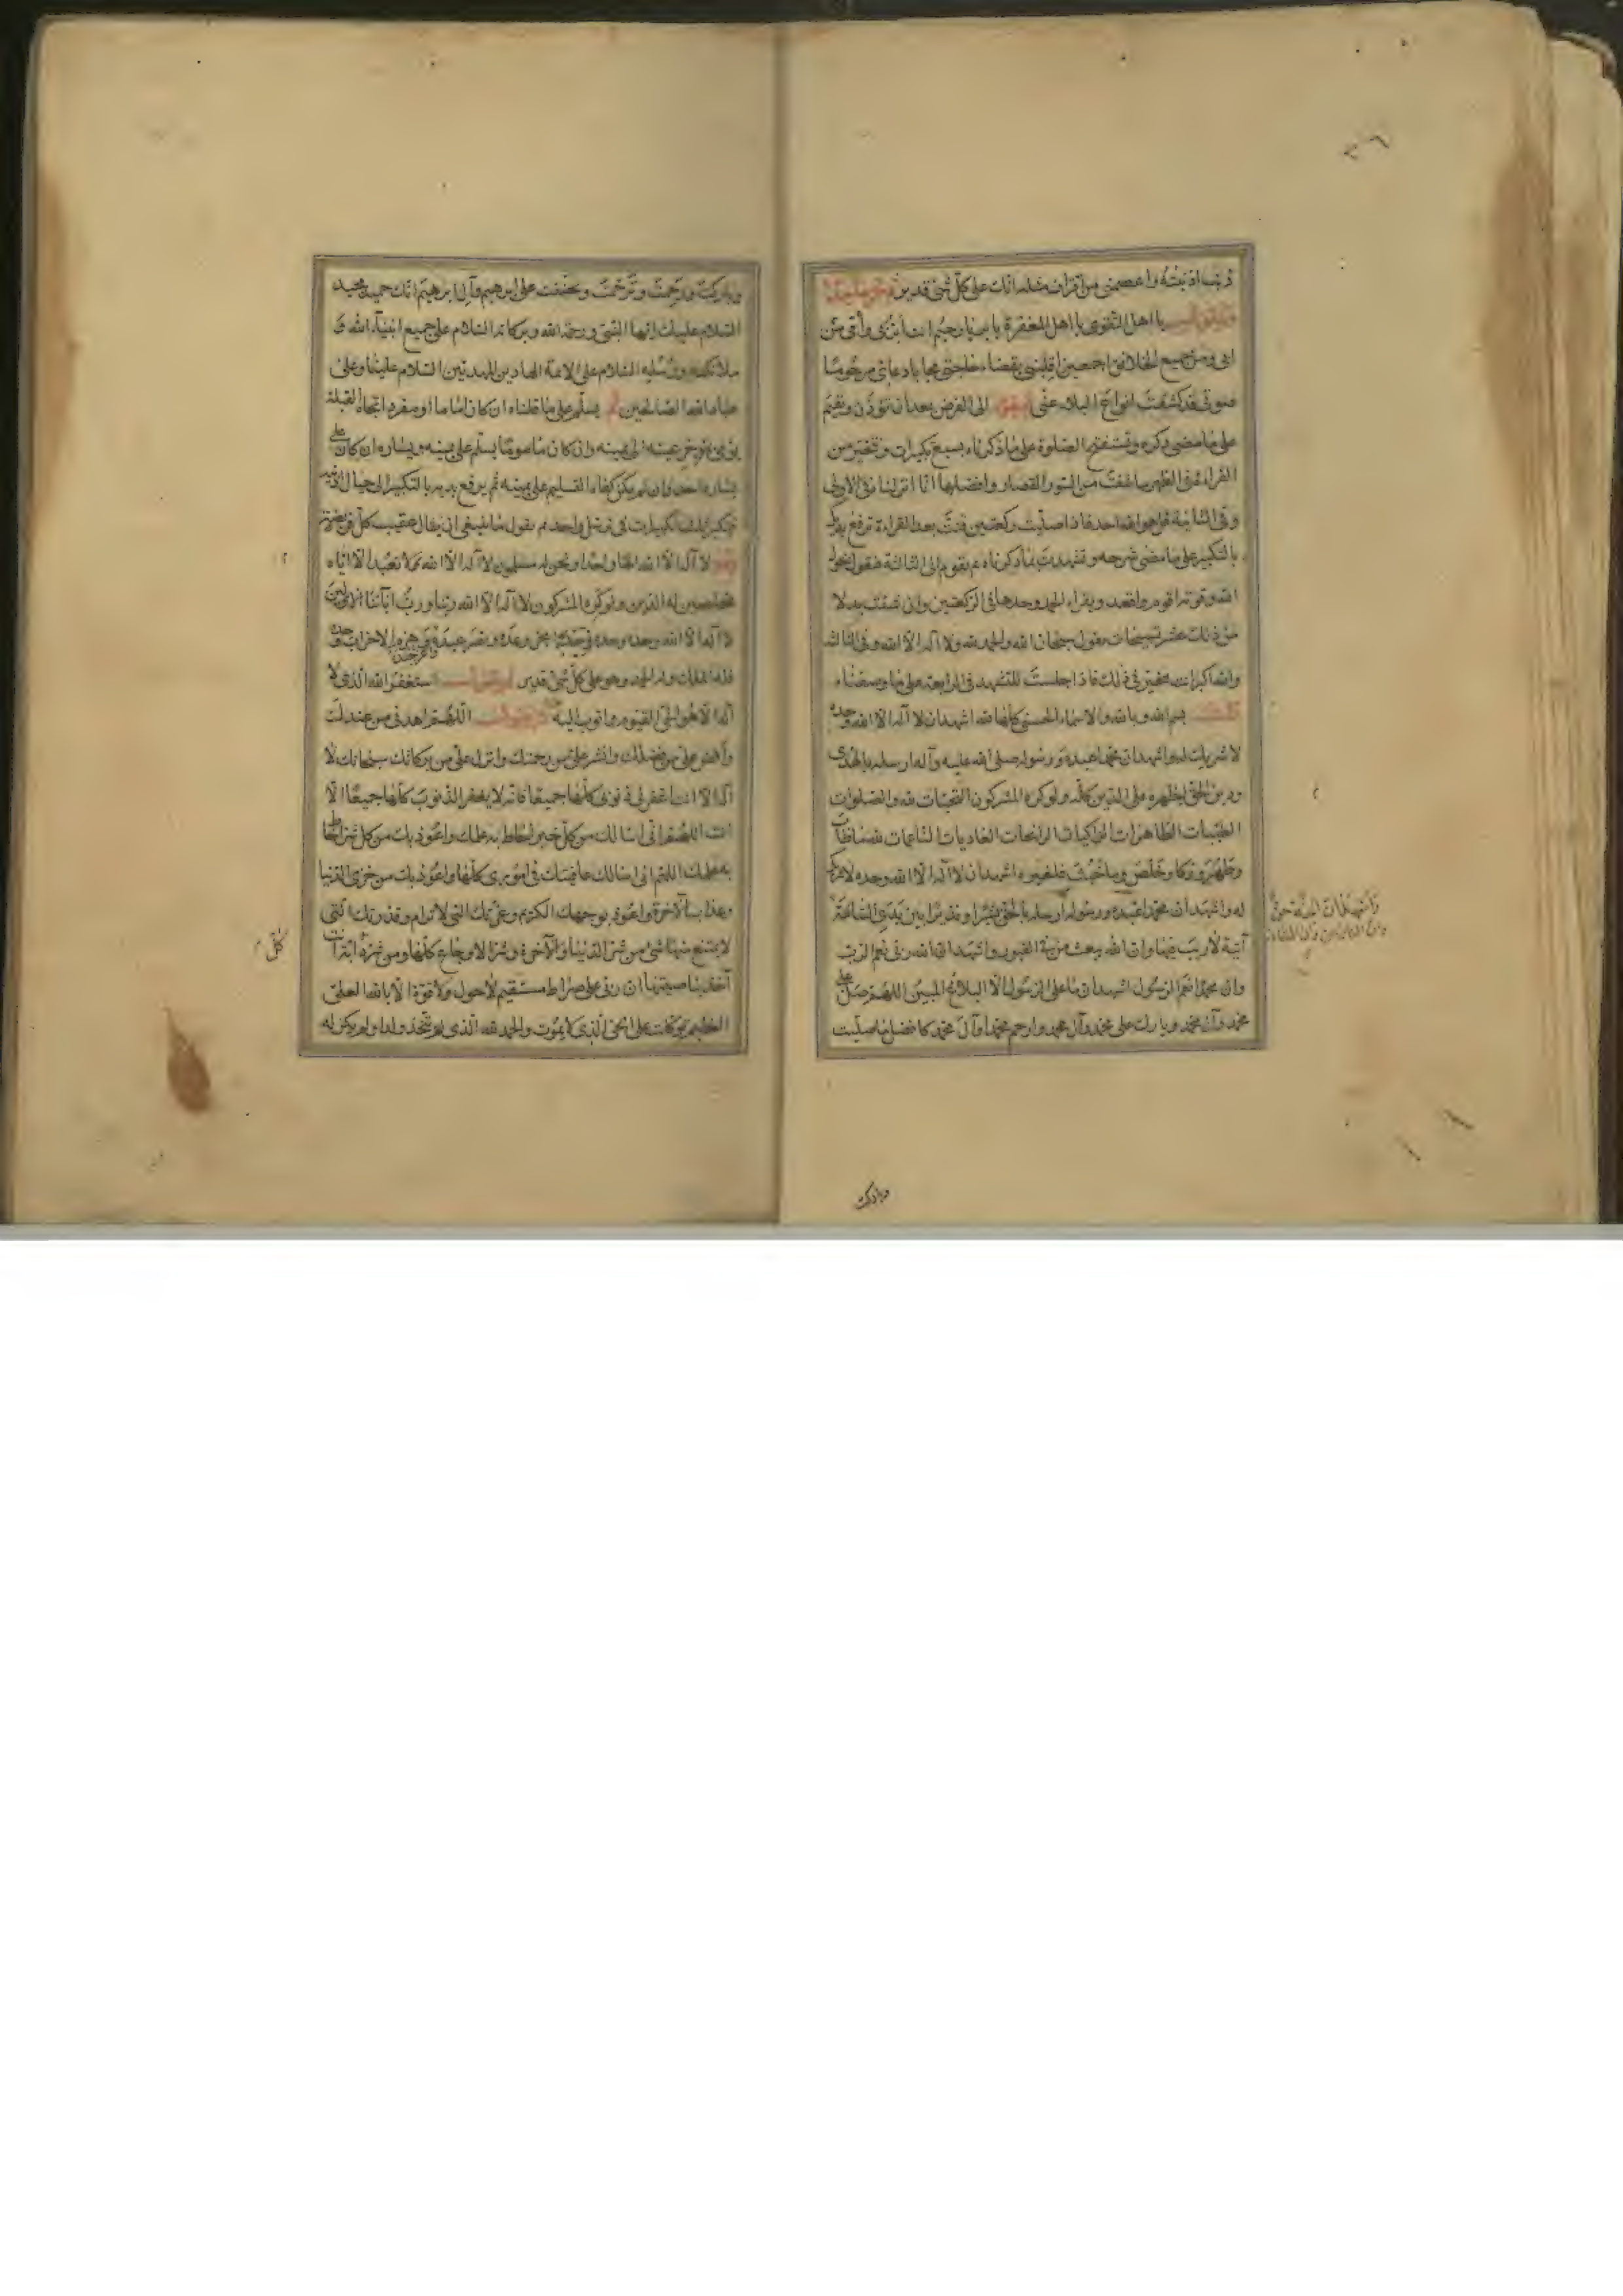 ذنب اذنبته واعصمني من اقتراف مثله انك على كل شئ قدير ثم تخر ساجدا
وتقول يا اهل التقوى يا اهل المغفرة يا بر يا رحيم انت ابر بى من ابى وامى ومن
جميع الخلائق اجمعين اقلبنى بقضاء حاجتى مجابا دعائى مرحوما
صوتى قد كشفت انواع البلاء عنى الى الفرض بعد ان تؤذن وتقيم
على ما مضى ذكره وتستفتح الصلوة على ما ذكرناه بسبع تكبيرات وتتخير من
القراءة فى الظهر ما شئت من السور القصار وافضلها انا انزلناه فى الاولى
وفى الثانية قل هو الله احد فاذا صليت ركعتين قنت بعد القراءة ترفع يديك
بالتكبير على ما مضى شرحه وتشهدت بما ذكرناه ثم تقوم الى الثالثة فتقول بحول
الله وقوته اقوم واقعد ويقراء الحمد وحدها فى الركعتين وان شئت بدلا
من ذلك عشر تسبيحات يقول سبحان الله والحمد لله ولا آله الا الله وفى الثالثة
والله اكبر انت مخير فى ذلك فاذا جلست للتشهد فى الرابعة على ما وصفناه
قلت بسم الله وبالله والاسماء الحسنى كلها لله اشهد ان لا آله الا الله وحده
لا شريك له واشهد ان محمدا عبده ورسوله صلى الله عليه وآله ارسله بالهدى
ودين الحق ليظهره على الدين كله ولو كره المشركون التحيات لله والصلوات
الطيبات الطاهرات الزاكيات الرائحات الغاديات الناعمات لله ما طاب
وطهر وزكا وخلص وما خبث فلغيره اشهد ان لا آله الا الله وحده لا شريك
له واشهد ان محمدا عبده ورسوله ارسله بالحق بشيرا ونذيرا بين يدى الساعة
وان الساعة آتية لا ريب فيها وان الله يبعث من فى القبور واشهد ان الله ربى نعم الرب
وان محمدا نعم الرسول اشهد ان ما على الرسول الا البلاغ المبين اللهم صل على
محمد وآل محمد وبارك على محمد وآل محمد وارحم محمدا وآل محمد كافضل ما صليت
واشهد ان الجنة حق
وان النار حق
وباركت
وباركت ورحمت وترحمت وتحننت على ابرهيم وآل ابرهيم انك حميد مجيد
السلام عليك ايها النبى ورحمة الله وبركاته السلام على جميع انبياء الله و
ملائكته ورسله السلام على الائمة الهادين المهديين السلام علينا وعلى
عباد الله الصالحين ثم يسلم على ما قلناه ان كان اماما او منفردا تجاه القبلة
يومئ بمؤخر عينه الى يمينه وان كان ماموما يسلم على يمينه ويساره ان كان على
يساره احد وان لم يكن كفاه التسليم على يمينه ثم يرفع يديه بالتكبير الى حيال اذنيه
فيكبر ثلث تكبيرات فى ترسل واحد ثم يقول ما ينبغى ان يقال عقيب كل فريضة
وهو لا آله الا الله الها واحدا ونحن له مسلمون لا آله الا الله ولا نعبد الا اياه
مخلصين له الدين ولو كره المشركون لا آله الا الله ربنا ورب آبائنا الاولين
لا آله الا الله وحده وحده وحده انجز وعده ونصر عبده واعز جنده وهزم الاحزاب وحده
فله الملك وله الحمد وهو على كل شئ قدير ثم تقول استغفر الله الذى لا
آله الا هو الحى القيوم واتوب اليه ثم تقول اللهم اهدنى من عندك
وافض على من فضلك وانشر على من رحمتك وانزل على من بركاتك سبحانك لا
آله الا انت اغفر لى ذنوبى كلها جميعا فانه لا يغفر الذنوب كلها جميعا الا
انت اللهم انى اسالك من كل خير احاط به علمك واعوذ بك من كل شر احاط
به علمك اللهم انى اسالك عافيتك فى امورى كلها واعوذ بك من خزى الدنيا
وعذاب الآخرة واعوذ بوجهك الكريم وعزتك التى لا ترام وقدرتك التى
لا يمتنع منها شئ من شر الدنيا والآخرة وشر الاوجاع كلها ومن شر دابة انت
آخذ بناصيتها ان ربى على صراط مستقيم لا حول ولا قوة الا بالله العلى
العظيم توكلت على الحى الذى لا يموت والحمد لله الذى لم يتخذ ولدا ولم يكن له
كل